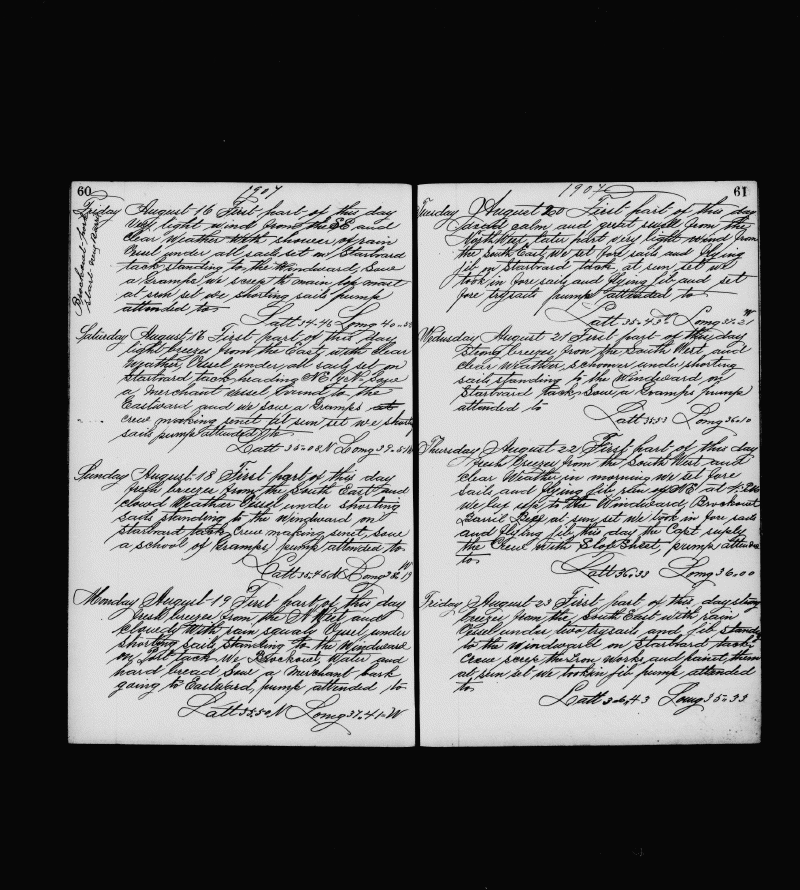 60
1907
Friday August 16 First part of this day
Very light wind from the SE and
Clear Weather With shower of rain
Vessel under all sails set on Starboard
tack standing to the Windward, Saw
a Gramps We scrape the main top mast
at sun set we shorting sails pump
attended to
Latt 34-46 Long 40
Brockout
Start
Saturday August 17 First part of this day
light breezes from the East, with Clear
Weather, Vessel under all sails set on
Starboard tack heading NE Saw
a Merchant Vessel bound to the
Eastward and we Saw a Gramps
Crew making sinet at sun set we short
sails pump attended to
Latt 35-08 N Long 39
Sunday August 18 First part of this day
fresh breezes from the South East and
Cloud Weather Vessel under shorting
sails standing to the Windward on
Starboard tack Crew making sinet, Saw
a school of Gramps, pump attended to
Latt 35.46 N Long 38 19 W
Monday August 19 First part of this day
fresh breezes from the West and
Cloudy With rain squals Vessel under
shorting sails Standing to the Windward
on Port tack We Brockout, Water and
hard bread Saw a Merchant bark
going to Eastward, pump attended to
Latt 35.50 N Long 37.41 W
61
1907
Tuesday August 20 First part of this day
dread calm and great swell from the
North West later part very light wind from
the South East We set fore sails and flying
jib on Starboard tack, at sun set we
took in fore sails and flying jib and set
fore trysails pump attended to
Latt 35-43 N Long 37-21 W
Wedusday August 21 First part of this day
Strong breezes from the South West and
Clear Weather, schooner under shorting
sails standing to the Windward on
Starboard tack Saw a Gramps pump
attended to
Latt 35.53 Long 36.10
Thursday August 22 First part of this day
fresh breezes from the South West and
Clear Weather in morning We set fore
sails and flying jib stin NE at 4 PM
We luf up to the Windward, Brockout
Barril Beef at sun set We took in fore sails
and flying jib this day the Capt supply
the Crew with Slop Chest pump attended
to
Latt 36.33 Long 36.00
Friday August 23 First part of this day strong
breezes from the South East with rain
Vessel under two trysails and jib stands
to the Windward on Starboard tack,
Crew scrap the Iron Works and paint them
at sun set We took in jib pump attended
to
Latt 43 Long 35.33